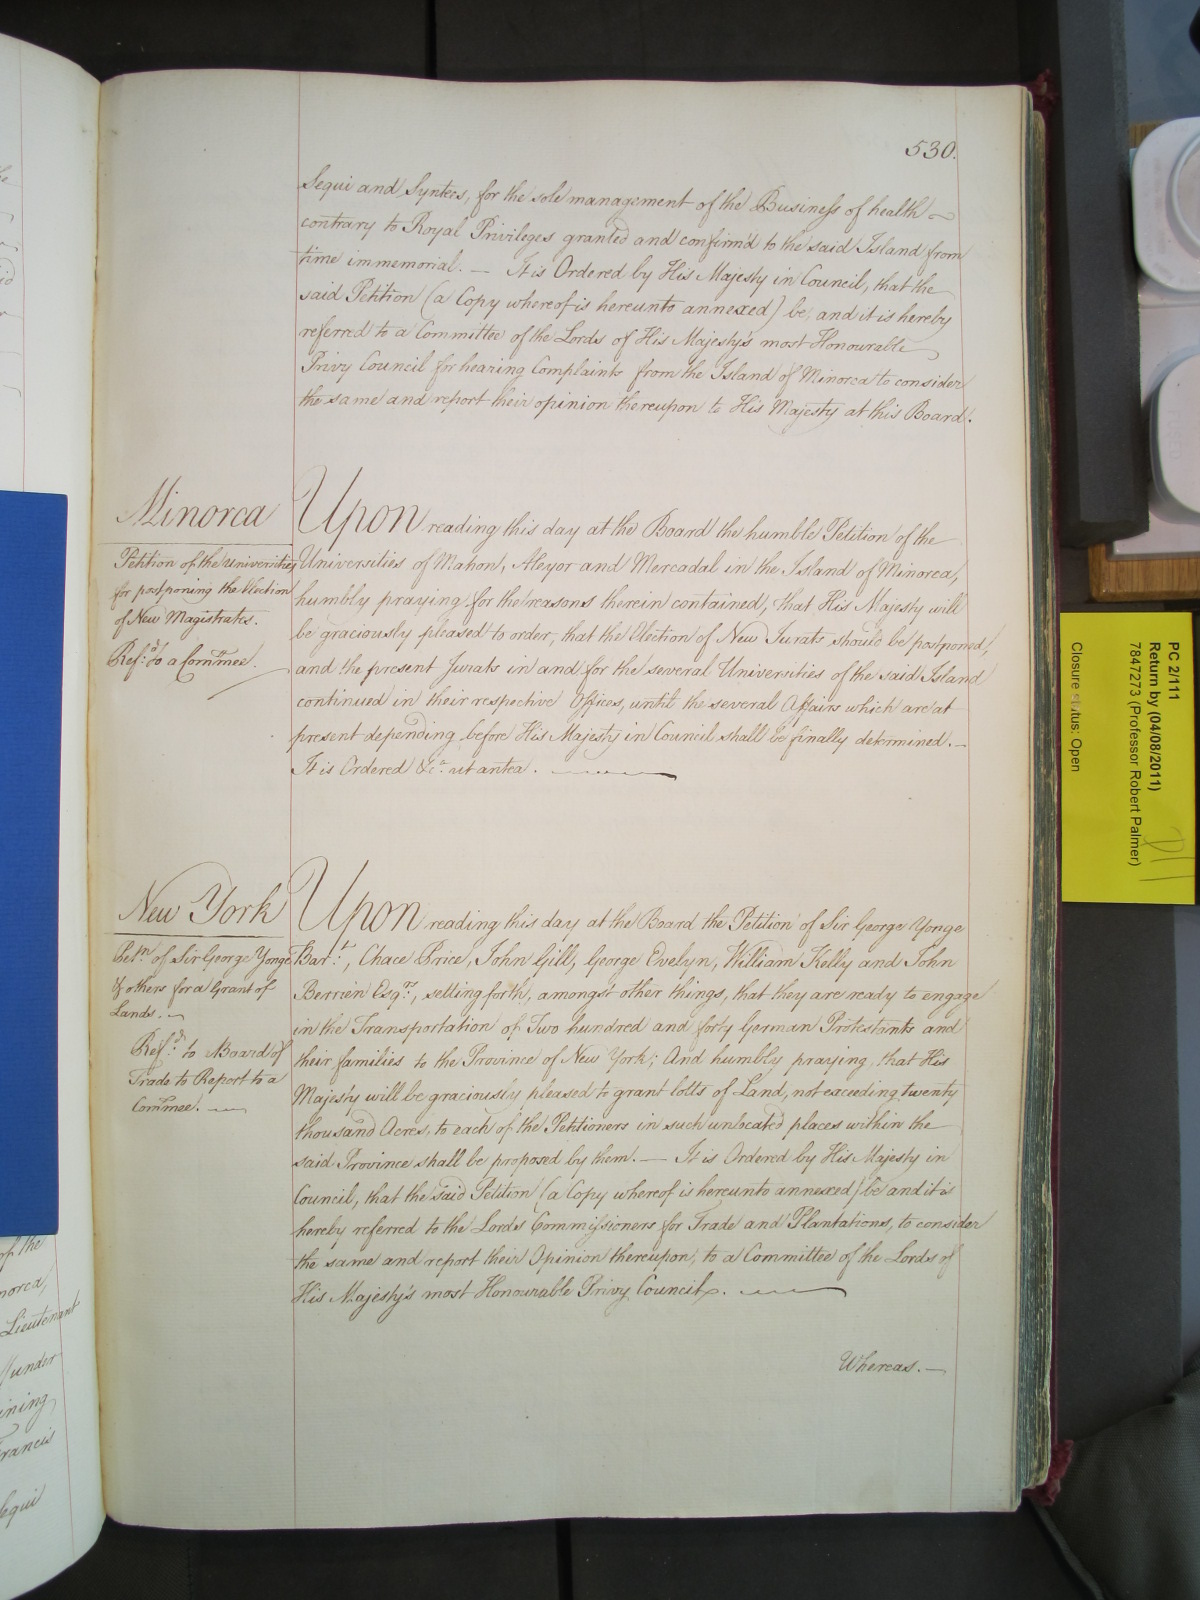 530.
Sequi and Synters, for the sole management of the Business of health
contrary to Royal Privileges granted and confirm'd to the said Island from
time immemorial. — It is Ordered by His Majesty in Council, that the
said Petition (a Copy whereof is hereunto annexed) be, and it is hereby
referred to a Committee of the Lords of His Majesty's most Honourable
Privy Council for hearing Complaints from the Island of Minorca to consider
the same and report their opinion thereupon to His Majesty at this Board.
Minorca
Petition of the Universities
for postponing the Election
of New Magistrates.
Ref:d to a Com̄mee.
Upon reading this day at the Board the humble Petition of the
Universities of Mahon, Aleyor and Mercadal in the Island of Minorca,
humbly praying for the reasons therein contained, that His Majesty will
be graciously pleased to order, that the Election of New Jurats should be postponed,
and the present Jurats in and for the several Universities of the said Island
continued in their respective Offices, until the several Affairs which are at
present depending before His Majesty in Council shall be finally determined. —
It is Ordered &c:a ut antea.
New York
Pet:n of Sir George Yonge
& others for a Grant of
Lands. —
Ref:d to Board of
Trade to Report to a
Com̄mee. —
Upon reading this day at the Board the Petition of Sir George Yonge
Bar:t, Chace Price, John Gill, George Evelyn, William Kelly and John
Berrien Esq:rs, setting forth, amongst other things, that they are ready to engage
in the Transportation of Two hundred and forty German Protestants and
their families to the Province of New York; And humbly praying, that His
Majesty will be graciously pleased to grant lotts of Land, not exceeding twenty
thousand Acres, to each of the Petitioners in such unlocated places within the
said Province shall be proposed by them. — It is Ordered by His Majesty in
Council, that the said Petition (a Copy whereof is hereunto annexed) be and it is
hereby referred to the Lords Commissioners for Trade and Plantations, to consider
the same and report their Opinion thereupon, to a Committee of the Lords of
His Majesty's most Honourable Privy Council.
Whereas. —
of the
norca,
Lieutenant
under
ining
Francis
Sequi
PC 2/111
Return by (04/08/2011)
7847273 (Professor Robert Palmer)
Closure status: Open